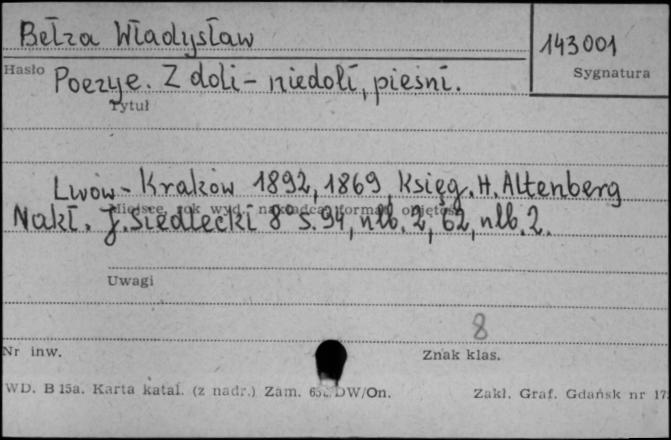 Bełza Władysław
143001
Hasło
Sygnatura
Poezye. Z doli - niedoli, pieśni.
Tytuł
Lwów - Kraków 1892, 1869, Księg. H. Altenberg
Miejsce, rok wyd., nakładca, format, objętość
Nakł. J. Siedlecki 8° s. 94, nlb. 2, 62, nlb. 2.
Uwagi
8
Nr inw.
Znak klas.
WD. B 15a. Karta katal. (z nadr.) Zam. DW/On.
Zakł. Graf. Gdańsk nr